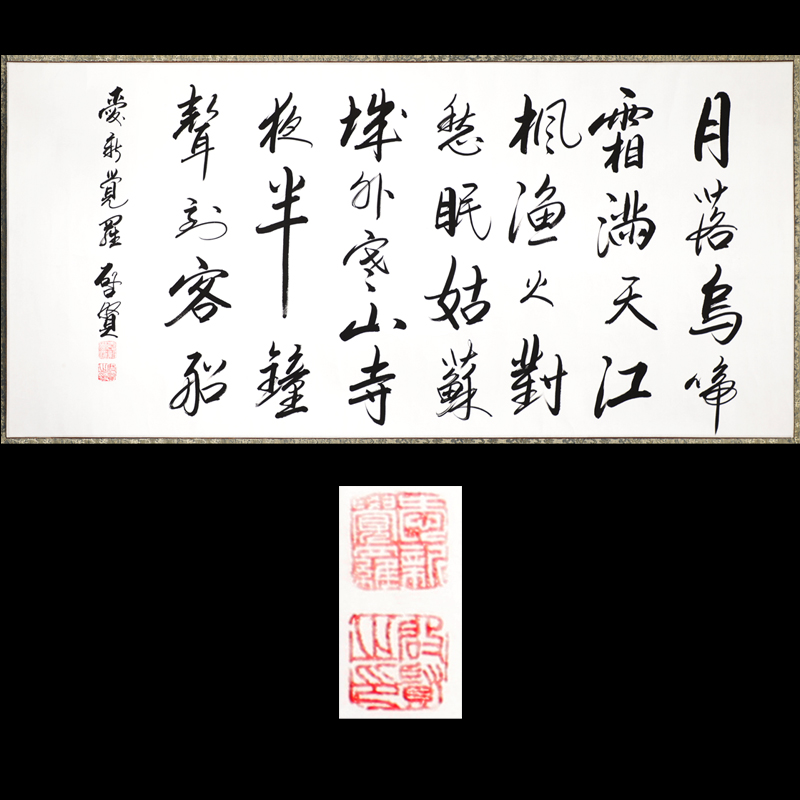 月落烏啼
霜滿天江
楓漁火對
愁眠姑蘇
城外寒山寺
夜半鐘
聲到客船
愛新覺羅 啓賢
愛新
覺羅
啓賢
之印